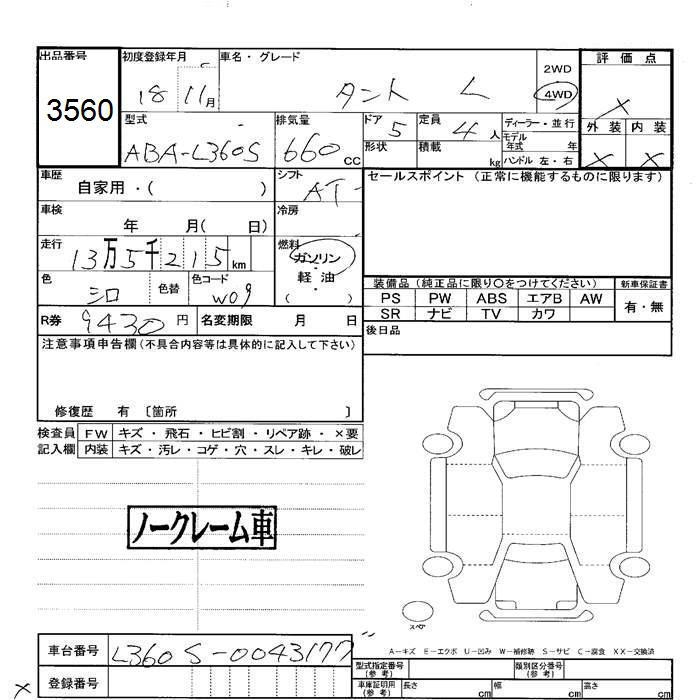 出品番号
3560
初度登録年月 車名・グレード
18 11月 タント L
2WD
4WD
評価点
X
外装 内装
X X
型式 排気量 ドア 定員 ディーラー・並行
ABA-L360S 660cc 5 4人
モデル年式 年
形状 積載 kg ハンドル 左・右
車歴 シフト セールスポイント (正常に機能するものに限ります)
自家用・( ) AT
車検 冷房
年 月( 日)
走行 燃料
13万5千215km ガソリン
軽油
( )
色 色替 色コード
シロ W09
装備品 (純正品に限り○をつけてください) 新車保証書
PS PW ABS エアB AW 有・無
SR ナビ TV カワ
R券 9430円 名変期限 月 日
後日品
注意事項申告欄(不具合内容等は具体的に記入して下さい)
修復歴 有 〔箇所 〕
検査員 FW キズ・飛石・ヒビ割・リペア跡・×要
記入欄 内装 キズ・汚レ・コゲ・穴・スレ・キレ・破レ
ノークレーム車
スペア
A－キズ E－エクボ U－凹み W－補修跡 S－サビ C－腐食 XX－交換済
車台番号 L360S-0043177
型式指定番号(参考) 類別区分番号(参考)
登録番号
車庫証明用(参考) 長さ cm 幅 cm 高さ cm
X